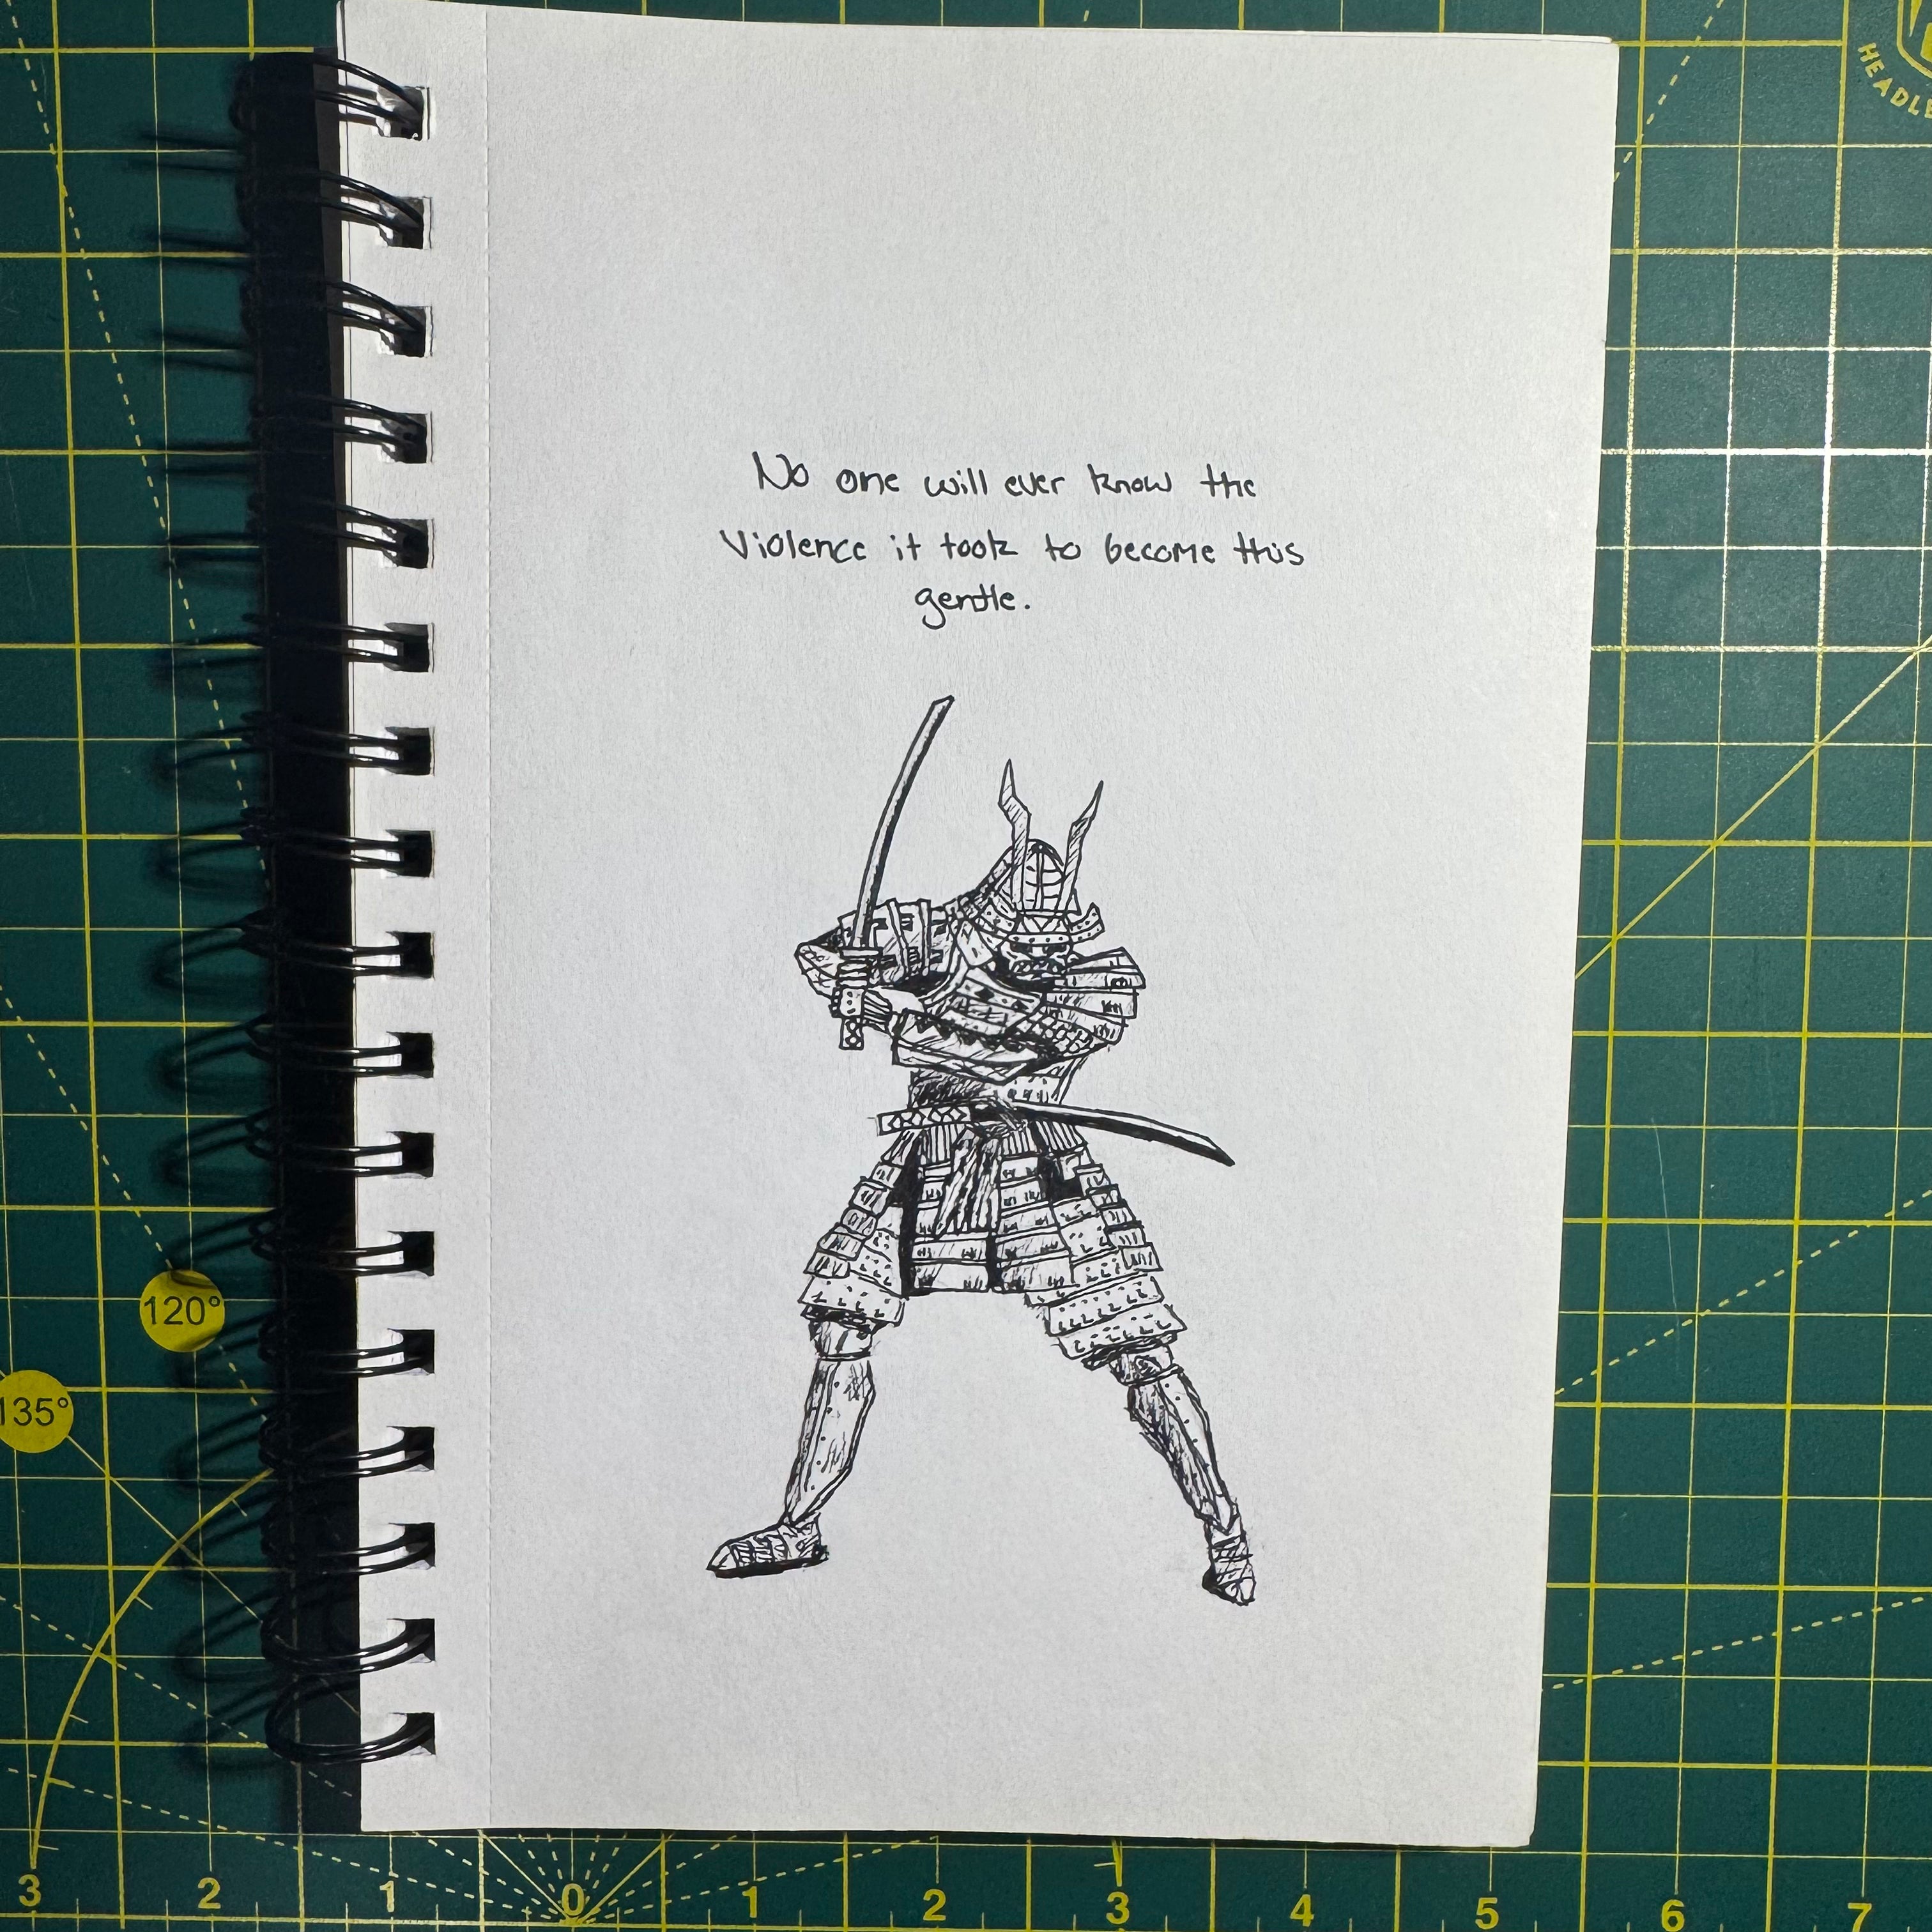 HEADLE
No one will ever know the
Violence it took to become this
gentle.
120°
135°
3 2 1 0 1 2 3 4 5 6 7